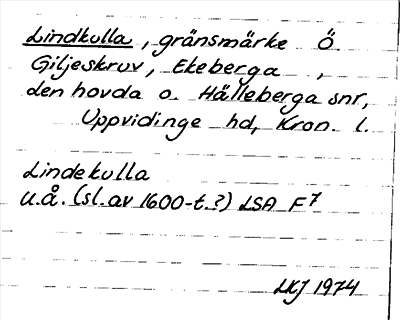 Lindkulla, gränsmärke Ö
Giljeskruv, Ekeberga,
Lenhovda o. Hälleberga snr,
Uppvidinge hd, Kron. l.
Lindekulla
u.å. (sl. av 1600-t.?) LSA F7
LKJ 1974